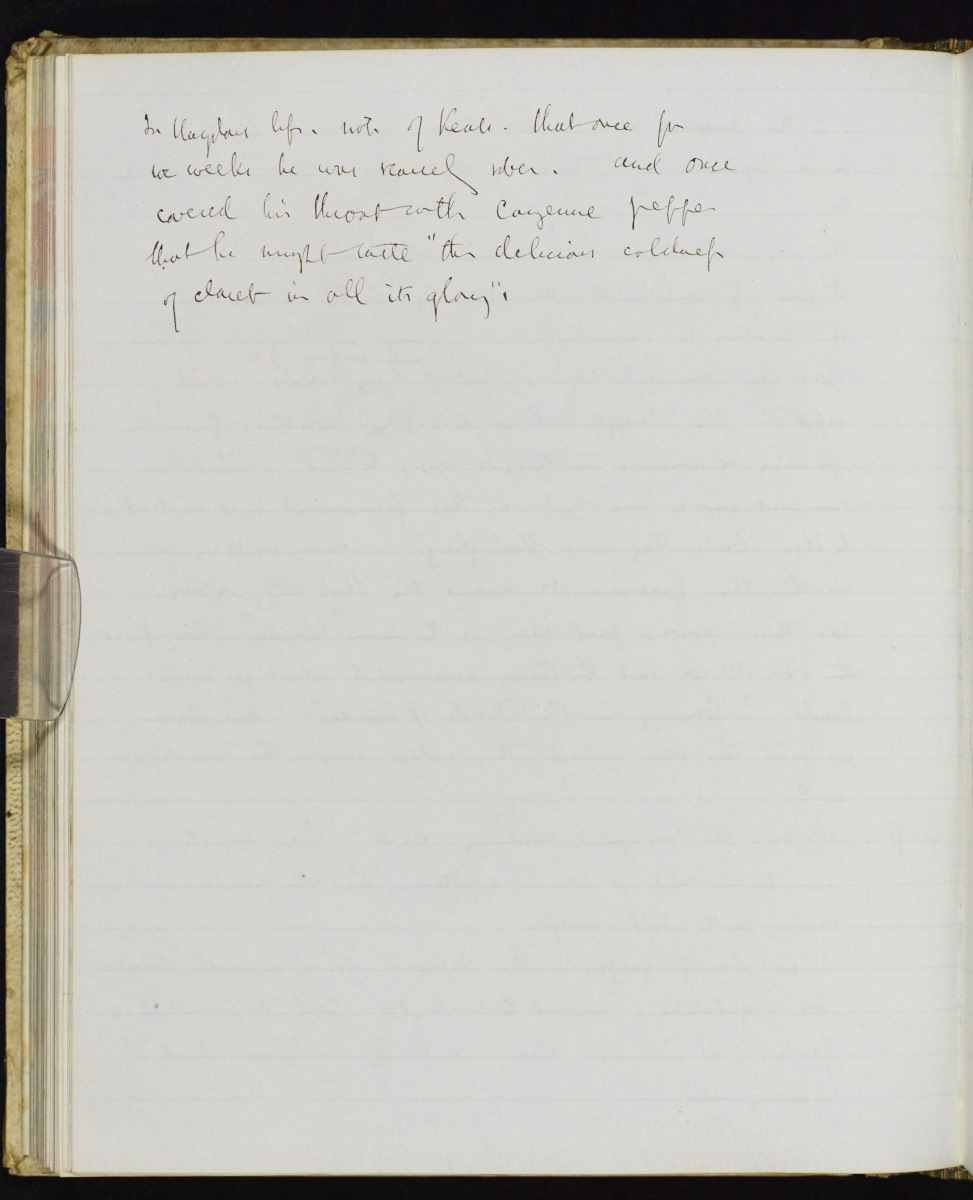 In Haydons life. note of Keats. that once for
six weeks he was scarcely sober. and once
covered his throat with Cayenne pepper
that he might taste "the delicious coldness
of claret in all its glory".